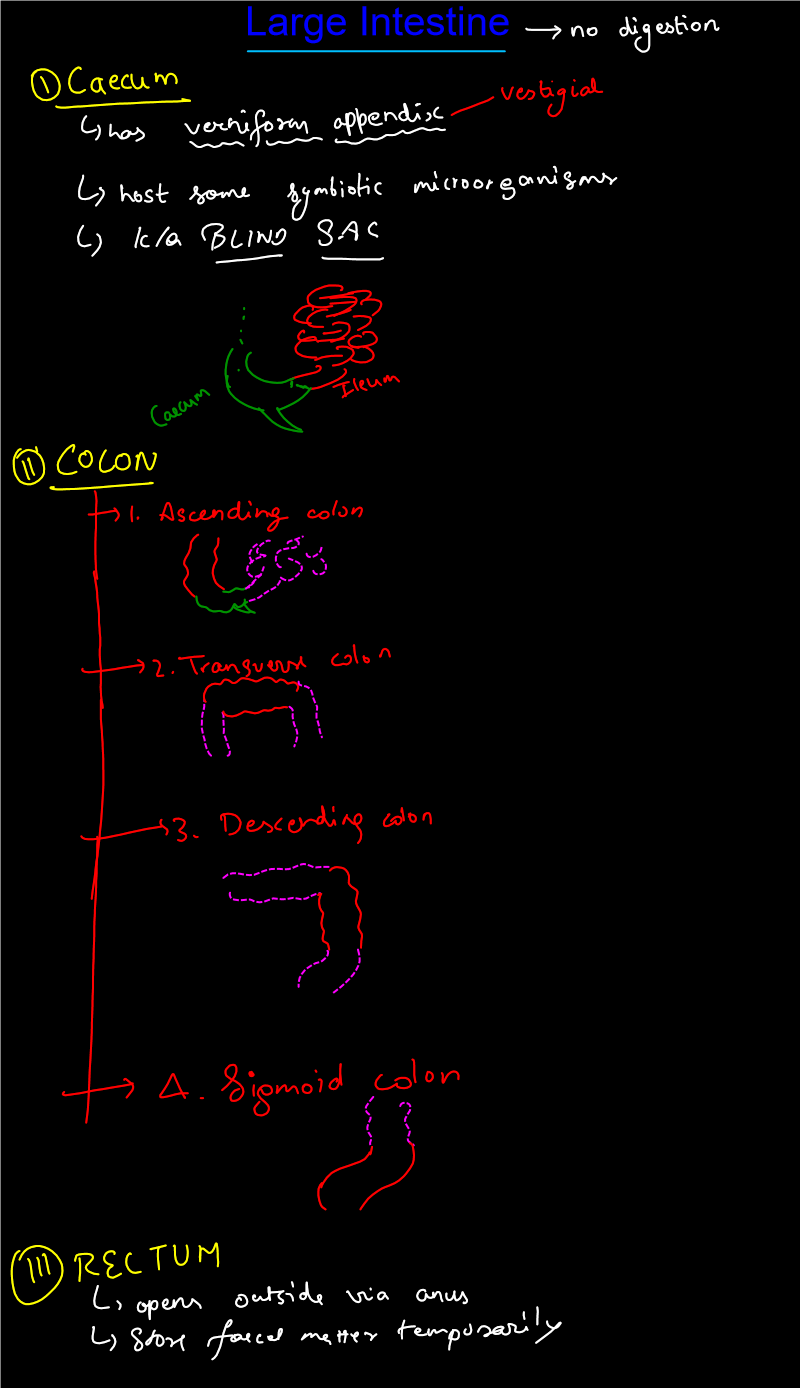 Large Intestine → no digestion
① Caecum
↳ has vermiform appendix — vestigial
↳ host some symbiotic microorganisms
↳ k/a BLIND SAC
Ileum
Caecum
II COLON
→ 1. Ascending colon
→ 2. Transverse colon
→ 3. Descending colon
→ 4. Sigmoid colon
III RECTUM
↳ opens outside via anus
↳ store faecal matter temporarily